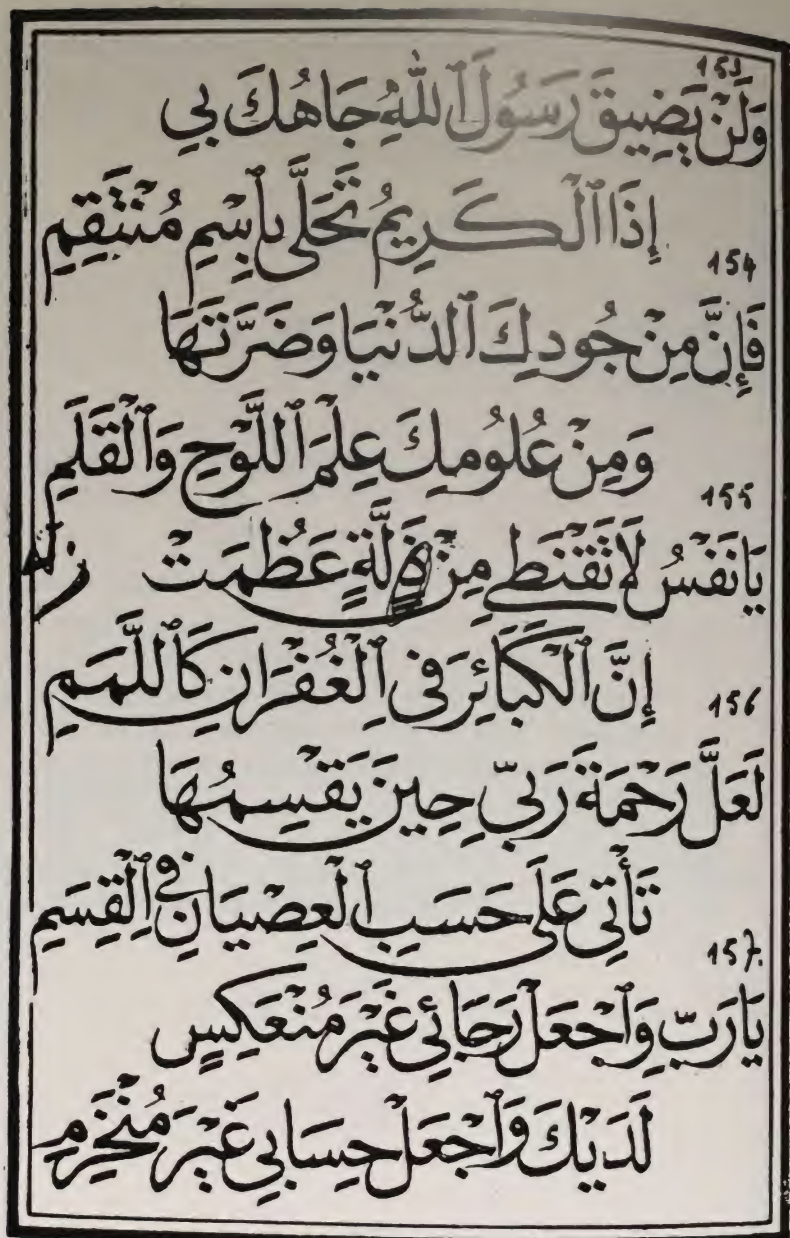 153
وَلَنْ يَضِيقَ رَسُولَ ٱللَّهِ جَاهُكَ بِي
إِذَا ٱلْكَرِيمُ تَحَلَّى بِٱسْمِ مُنْتَقِمِ
154
فَإِنَّ مِنْ جُودِكَ ٱلدُّنْيَا وَضَرَّتَهَا
وَمِنْ عُلُومِكَ عِلْمَ ٱللَّوْحِ وَٱلْقَلَمِ
155
يَا نَفْسُ لَا تَقْنَطِي مِنْ زَلَّةٍ عَظُمَتْ زلة
إِنَّ ٱلْكَبَائِرَ فِي ٱلْغُفْرَانِ كَٱللَّمَمِ
156
لَعَلَّ رَحْمَةَ رَبِّي حِينَ يَقْسِمُهَا
تَأْتِي عَلَى حَسَبِ ٱلْعِصْيَانِ فِي ٱلْقِسَمِ
157.
يَا رَبِّ وَٱجْعَلْ رَجَائِي غَيْرَ مُنْعَكِسٍ
لَدَيْكَ وَٱجْعَلْ حِسَابِي غَيْرَ مُنْخَرِمِ